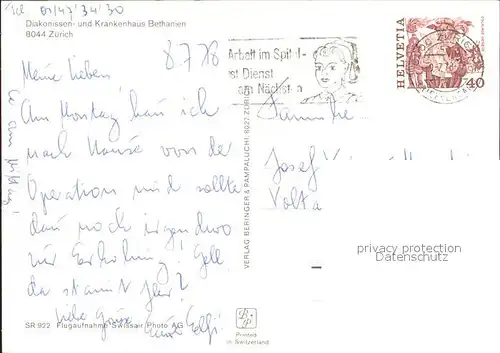 Tel 01/47'34'30
Diakonissen- und Krankenhaus Bethanien
8044 Zürich
8.7.78
Meine Lieben
Am Montag kann ich
nach Hause von der
Operation und sollte
dann noch irgendwo
zur Erholung! Gell
da staunt Ihr?
Liebe Grüsse
Arbeit im Spital -
ist Dienst
am Nächsten
HELVETIA
40
Familie
Josef
Volta
VERLAG BERINGER & PAMPALUCHI 8027 ZÜRICH
privacy protection
Datenschutz
SR 922 Flugaufnahme Swissair Photo AG
Printed
in Switzerland